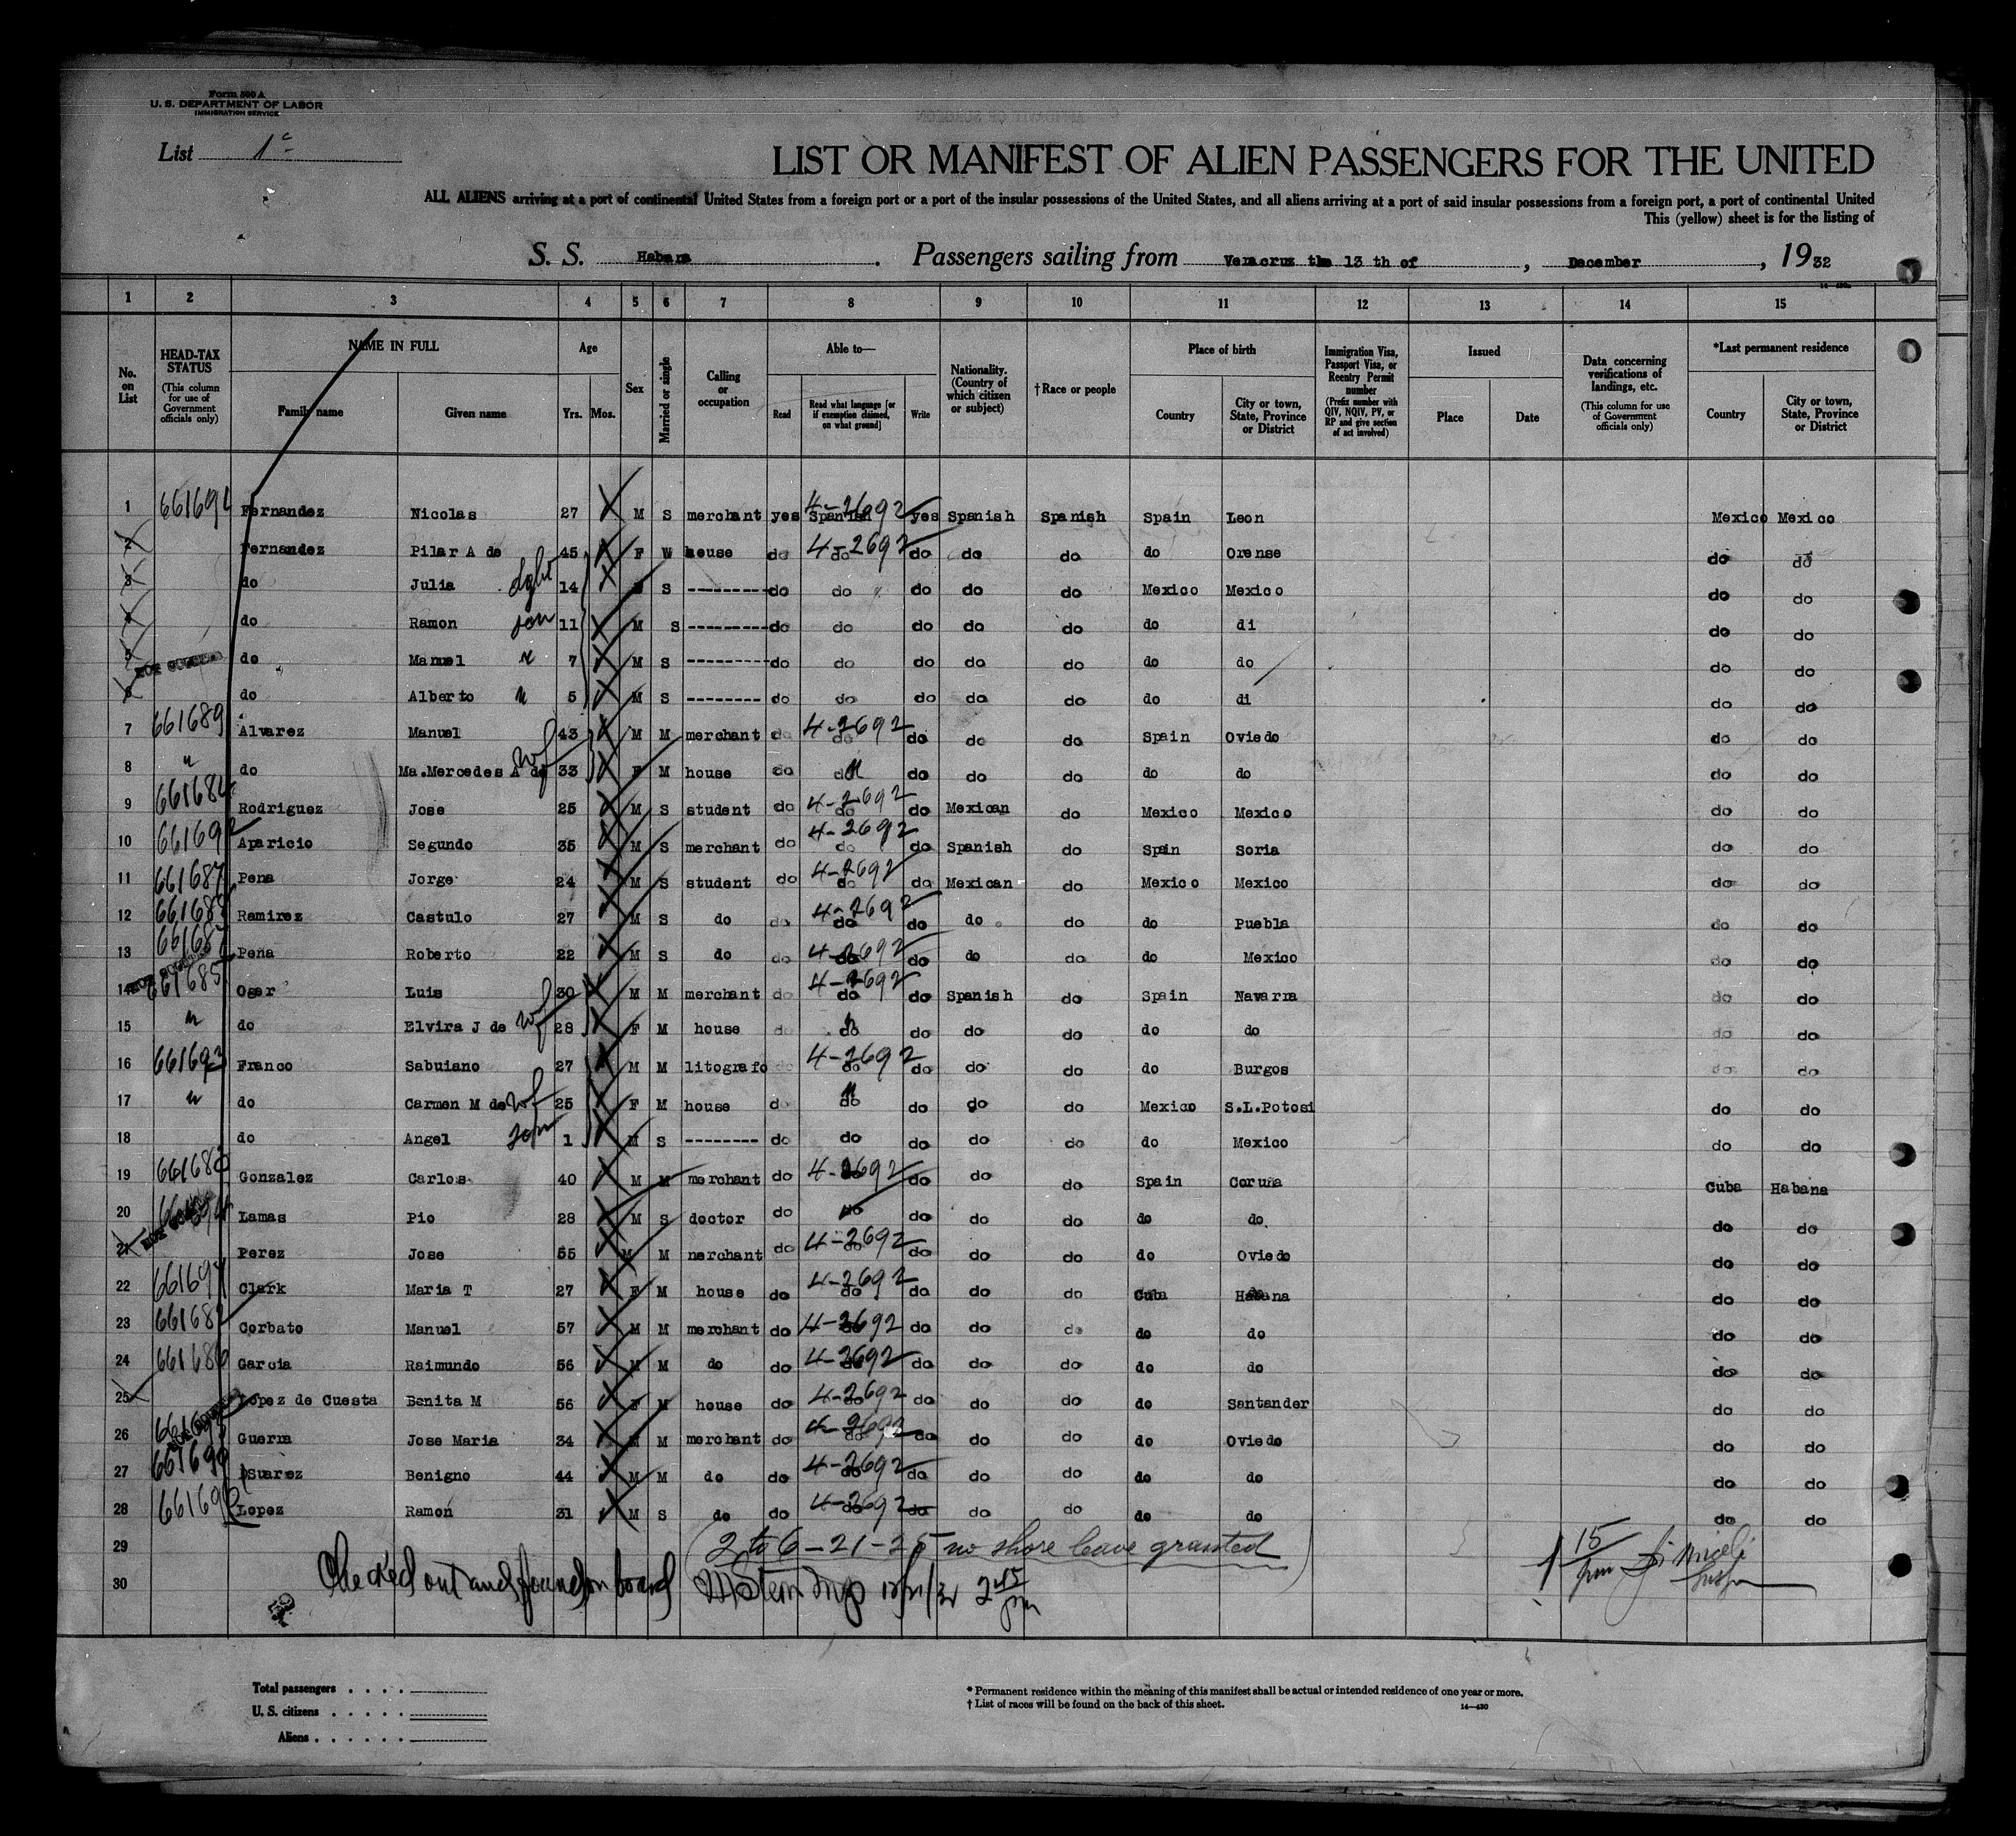 Form 500 A
U. S. DEPARTMENT OF LABOR
IMMIGRATION SERVICE
List 1c
LIST OR MANIFEST OF ALIEN PASSENGERS FOR THE UNITED
ALL ALIENS arriving at a port of continental United States from a foreign port or a port of the insular possessions of the United States, and all aliens arriving at a port of said insular possessions from a foreign port, a port of continental United
This (yellow) sheet is for the listing of
S. S. Habana . Passengers sailing from Veracruz the 13 th of , December , 1932
1 2 3 4 5 6 7 8 9 10 11 12 13 14 15
No. on List
HEAD-TAX STATUS (This column for use of Government officials only)
NAME IN FULL Family name Given name
Age Yrs. Mos.
Sex
Married or single
Calling or occupation
Able to— Read Read what language [or if exemption claimed, on what ground] Write
Nationality. (Country of which citizen or subject)
†Race or people
Place of birth Country City or town, State, Province or District
Immigration Visa, Passport Visa, or Reentry Permit number (Prefix number with QIV, NQIV, PV, or RP and give section of act involved)
Issued Place Date
Data concerning verifications of landings, etc. (This column for use of Government officials only)
*Last permanent residence Country City or town, State, Province or District
1 Fernandez Nicolas 27 M S merchant yes Spanish 4-2692 yes Spanish Spanish Spain Leon Mexico Mexico
2 Fernandez Pilar A de 45 F W house do do 4-2692 do do do do Orense do do
3 do Julia 14 S -------- do do do do do Mexico Mexico do do
4 do Ramon son 11 M S -------- do do do do do do di do do
5 do Manuel " 7 M S -------- do do do do do do do do do
6 do Alberto " 5 M S -------- do do do do do do di do do
7 661689 Alvarez Manuel 43 M M merchant do do 4-2692 do do do Spain Oviedo do do
8 " do Ma.Mercedes A de wf 33 F M house do do " do do do do do do do
9 Rodriguez Jose 25 M S student do do 4-2692 do Mexican do Mexico Mexico do do
10 661692 Aparicio Segundo 35 M S merchant do do 4-2692 do Spanish do Spain Soria do do
11 661687 Pena Jorge 24 M S student do do 4-2692 do Mexican do Mexico Mexico do do
12 Ramirez Castulo 27 M S do do do 4-2692 do do do do Puebla do do
13 661687 Pena Roberto 22 M S do do do 4-2692 do do do do Mexico do do
14 661685 Oger Luis 30 M M merchant do do 4-2692 do Spanish do Spain Navarra do do
15 " do Elvira J de wf 28 F M house do do " do do do do do do do
16 661693 Franco Sabuiano 27 M M litografo do do 4-2692 do do do do Burgos do do
17 " do Carmen M de wf 25 F M house do do " do do do Mexico S.L.Potosi do do
18 do Angel son 1 M S -------- do do do do do do Mexico do do
19 Gonzalez Carlos 40 M M merchant do 4-2692 do do do Spain Coruña Cuba Habana
20 Lamas Pio 28 M S doctor do do do do do do do do do
21 Perez Jose 55 M M merchant do do 4-2692 do do do do Oviedo do do
22 Clark Maria T 27 F M house do do 4-2692 do do do Cuba Habana do do
23 661682 Corbato Manuel 57 M M merchant do do 4-2692 do do do do do do do
24 661686 Garcia Raimundo 56 M M do do do 4-2692 do do do do do do do
25 Lopez de Cuesta Benita M 56 F M house do do 4-2692 do do do do Santander do do
26 Guerra Jose Maria 34 M M merchant do do 4-2692 do do do do Oviedo do do
27 Suarez Benigno 44 M M do do do 4-2692 do do do do do do do
28 Lopez Ramon 31 M S do do do 4-2692 do do do do do do do
29 (2 to 6-21-25 no shore leave granted)
30 Checked out and found on board 2 45 pm
Total passengers . . . .
U. S. citizens . . . . .
Aliens . . . . . .
* Permanent residence within the meaning of this manifest shall be actual or intended residence of one year or more.
† List of races will be found on the back of this sheet.
14—430